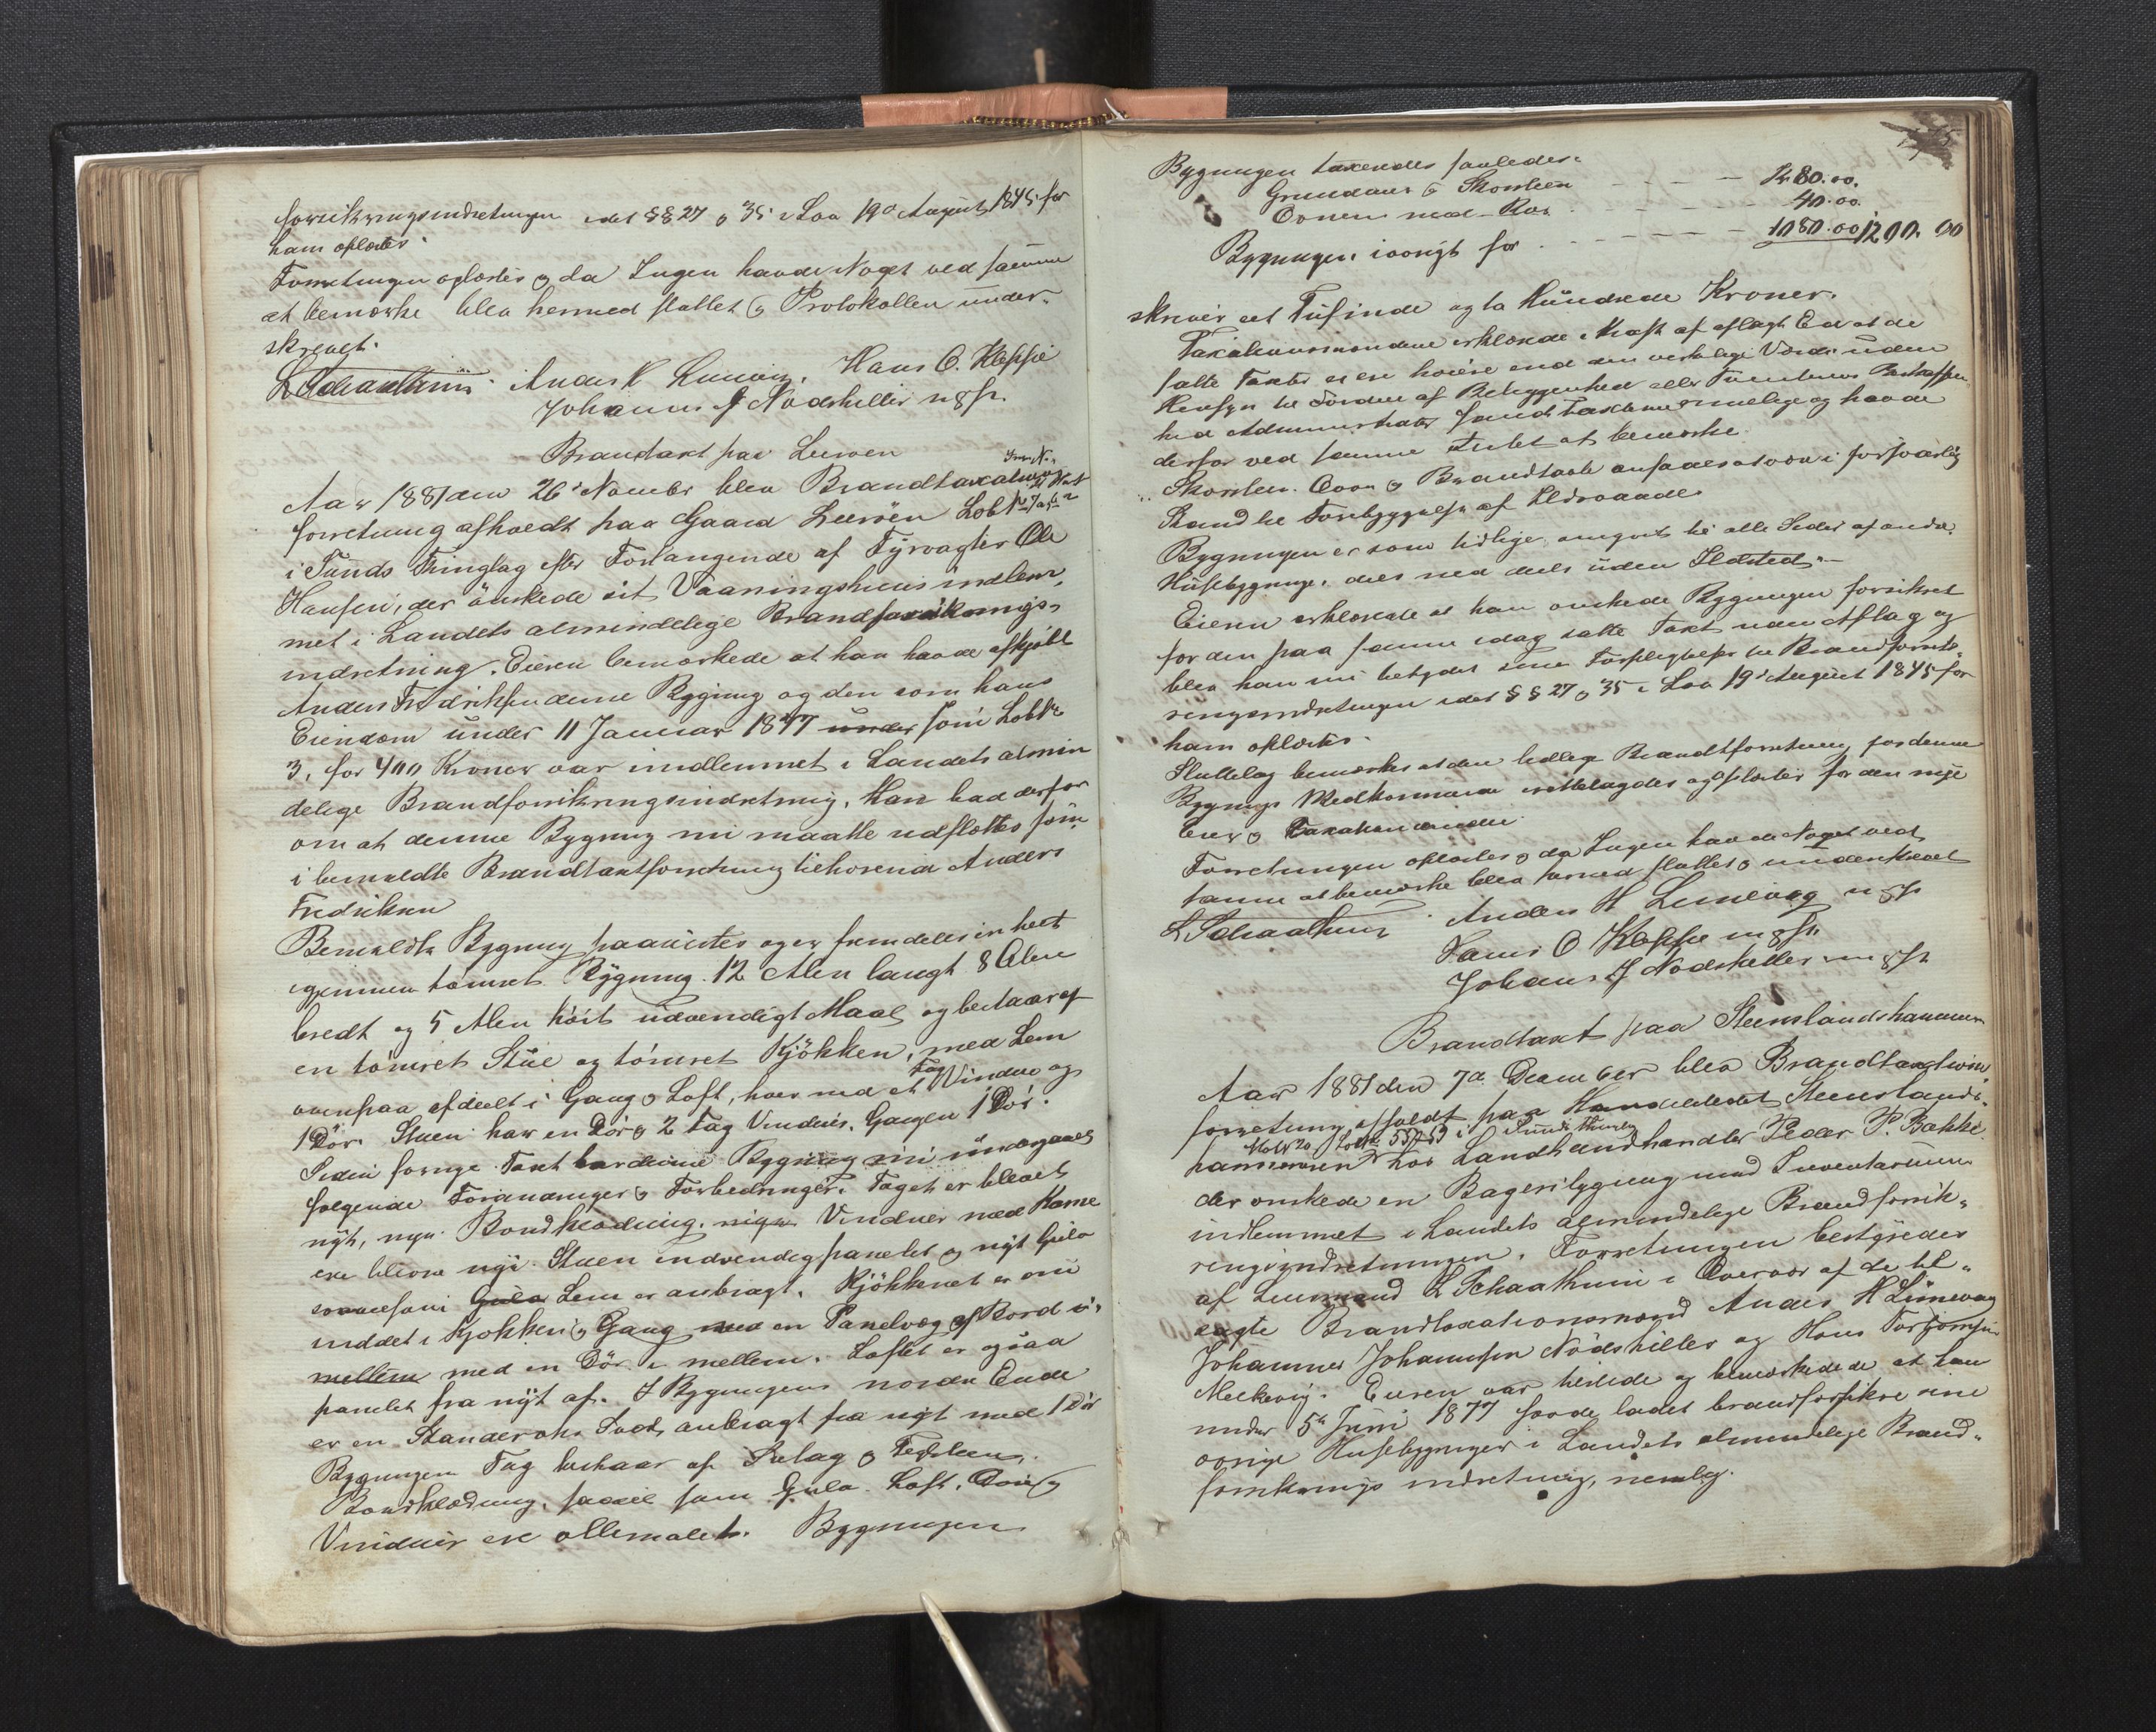 forsikringsindretningen idet §§ 27 & 35 i Lov 19de August 1845 for
ham oplæstes.
Forretningen oplæstes & da Ingen havde Noget ved samme
at bemærke blev hermed sluttet & Protokollen under-
skrevet.
L Schaathuun. Anders H Hans O. Kleppe
Johannes J Nödskilles m g P.
Brandtaxt paa Leeroen
Aar 1881 den 26de November blev Brandtaxations
forretning afholdt paa Gaard Leeröen Löb No
i Sunds Thinglag efter Forlangende af Fyrvagter Ole
Hansen, der önskede sit Vaaningshuus indlem-
met i Landets almindelige Brandforsikrings-
indretning. Eieren bemærkede at han havde afkjöbt
Anders Fredriksen denne Bygning og den som hans
Eiendom under 11 Januar 1877 under som Lobno
3, for 400 Kroner var indlemmet i Landets almin
delige Brandforsikringsindretning. Han bad derfor
om at denne Bygning nu maatte udslettes som
i bemeldte Brandtaxtforretning tilhorende Anders
Fredriksen
Bemeldte Bygning paavistes og er fremdeles en heelt
igjennem tömret Bygning. 12 Alen langt 8 Alen
bredt og 5 Alen höit udvendigt Maal og bestaar af
en tömret Stue og tömret Kjökken, med Lem
ovenpaa afdeelt i Gang & Loft, hver med et Fag Vindue og
1 Dör. Stuen har en Dör & 2 Fag Vinduer, Gangen 1 Dör.
Siden forrige Taxt har denne Bygning nu undergaaet
folgende Forandringer & Forbedringer. Taget er blevet
nyt, nye Bordklædning. nye Vinduer med Karme
ere blevne nye. Stuen indvendig panelet & nyt Gulv
saavelsom Gulv Lem er anbragt. Kjökkenet er om
inddelt i Kjökken & Gang med en Panelvæg af Bord i-
mellem med en Dör i mellem. Loftet er ogsaa
panelet fra nyt af. I Bygningens nordre Ende
er en Standerværks Tvet anbragt fra nyt med 1 Dör
Bygningen Tag bestaar af Sutag & Teglsteen.
Bordklædning, Panel samt Gulv. Loft, Döre &
Vinduer ere ollemalet. Bygningen
Bygningen taxeredes saaledes.
Grundmur & Skorsteen - - - - Kr 80.00.
Ovnen med Rör - - - - 40.00.
Bygningen iövrigt for - - - - 1080.00 1200.00
skriver eet Tusinde og to Hundrede Kroner.
Taxationsmændene erklærede i Kraft af aflagt Eed at de
satte Taxter ei ere höiere end den virkelige Værdi uden
Hensyn til Fordeel af Beliggenhed eller Tomtens Beskaffen
hed Administrator fandt Taxterne rimelige og havde
derfor ved samme Intet at bemærke.
Skorsteen. Ovn & Brandtavle ansaaes at være i forsvarlig
Stand til Forebyggelse af Ildsvaade
Bygningen er som tidligere omgivet til alle Sider af andre
Huusbygninger, deels med deels uden Ildsted.
Eieren erklærede at han önskede Bygningen forsikret
for den paa samme idag satte Taxt uden Afslag og
blev han nu betydet sine Forpligtelser til Brandforsik-
ringsindretningen idet §§ 27 & 35 i Lov 19de August 1845 for
ham oplæstes.
Sluttelig bemærkes at den tidligere Brandtforretning for denne
Bygnings Vedkommende irettelagdes og oplæstes for den nye
Eier & Taxationsmændene.
Forretningen oplæstes & da Ingen havde Noget ved
samme at bemærke blev hermed sluttet & underskrevet
L Schaathuun Anders H Leinevaag m g P
Hans O Kleppe m g P.
Johans J Nodskilles m g P
Brandtaxt paa Steenslandshavnen
Aar 1881 den 7de December blev Brandtaxations
forretning afholdt paa Handelstedet Steenslands-
havnen Mat No 20 Löbno 53 i Sund Thinglag hos Landhandler Peder P. Bakke
der önskede en Bageribygning med Inventarium
indlemmet i Landets almindelige Brandforsik-
ringsindretningen. Forretningen bestyredes
af Lensmand L Schaathuun i Overvær af de til-
sagte Brandtaxationsmænd Anders H Limevaag
Johannes Johannesen Nödskilles og Hans
Meckevig. Eieren var tilstede og bemærkede at han
under 5te Juni 1877 havde ladet brandforsikre sine
övrige Huusbygninger i Landets almindelige Brand-
forsikrings indretning, nemlig.